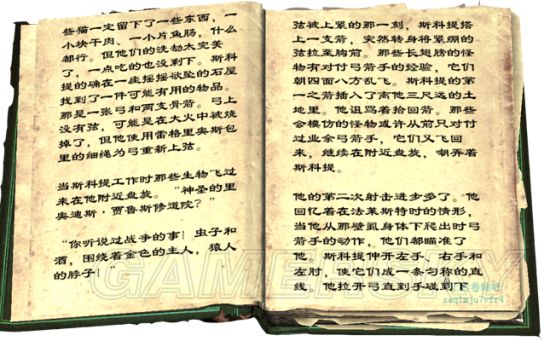 些猫一定留下了一些东西，一
小块干肉、一小片鱼肠，什么
都行。但他们的洗劫太完美
了，一点吃的也没剩下。斯科
提的确在一座摇摇欲坠的石屋
找到了一件可能有用的物品。
那是一张弓和两支骨箭。弓上
没有弦，可能是在大火中被烧
掉了，但他使用雷格里奥斯包
里的细绳为弓重新上弦。
当斯科提工作时那些生物飞过
来在他附近盘旋。“神圣的里
奥迪斯·贾鲁斯修道院？”
“你听说过战争的事！虫子和
酒，围绕着金色的主人，猿人
的脖子！”
弦被上紧的那一刻，斯科提搭
上一支箭，突然转身将紧绷的
弦拉至胸前。那些长翅膀的怪
物有对付弓箭手的经验，它们
朝四面八方乱飞。斯科提的第
一之箭插入了离他三尺远的土
地里。他诅骂着拾回箭。那些
会模仿的怪物或许从前只对付
过业余弓箭手，它们又飞回
来，继续在附近盘旋，胡弄着
斯科提。
他的第二次射击进步多了。他
回忆着在法莱斯特时的情形，
当他从那壁虱身体下爬出时弓
箭手的动作，他们都瞄准了
他。斯科提伸开左手、右手和
左肘，使它们成一条匀称的直
线。他拉开弓直到手碰到下
GAMERSKY
卷轴吧
zaq1mju7vfr4